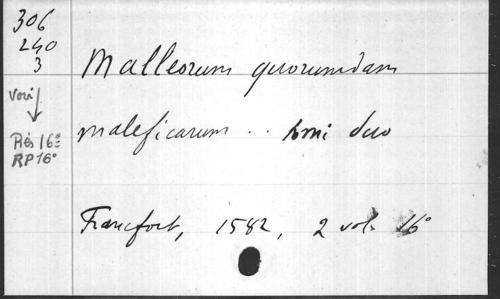 306
240
3
Malleorum quorumdam
maleficarum .. tomi duo
Voir
Rés 16°
RP 16°
Francfort, 1582, 2 vol. 16°